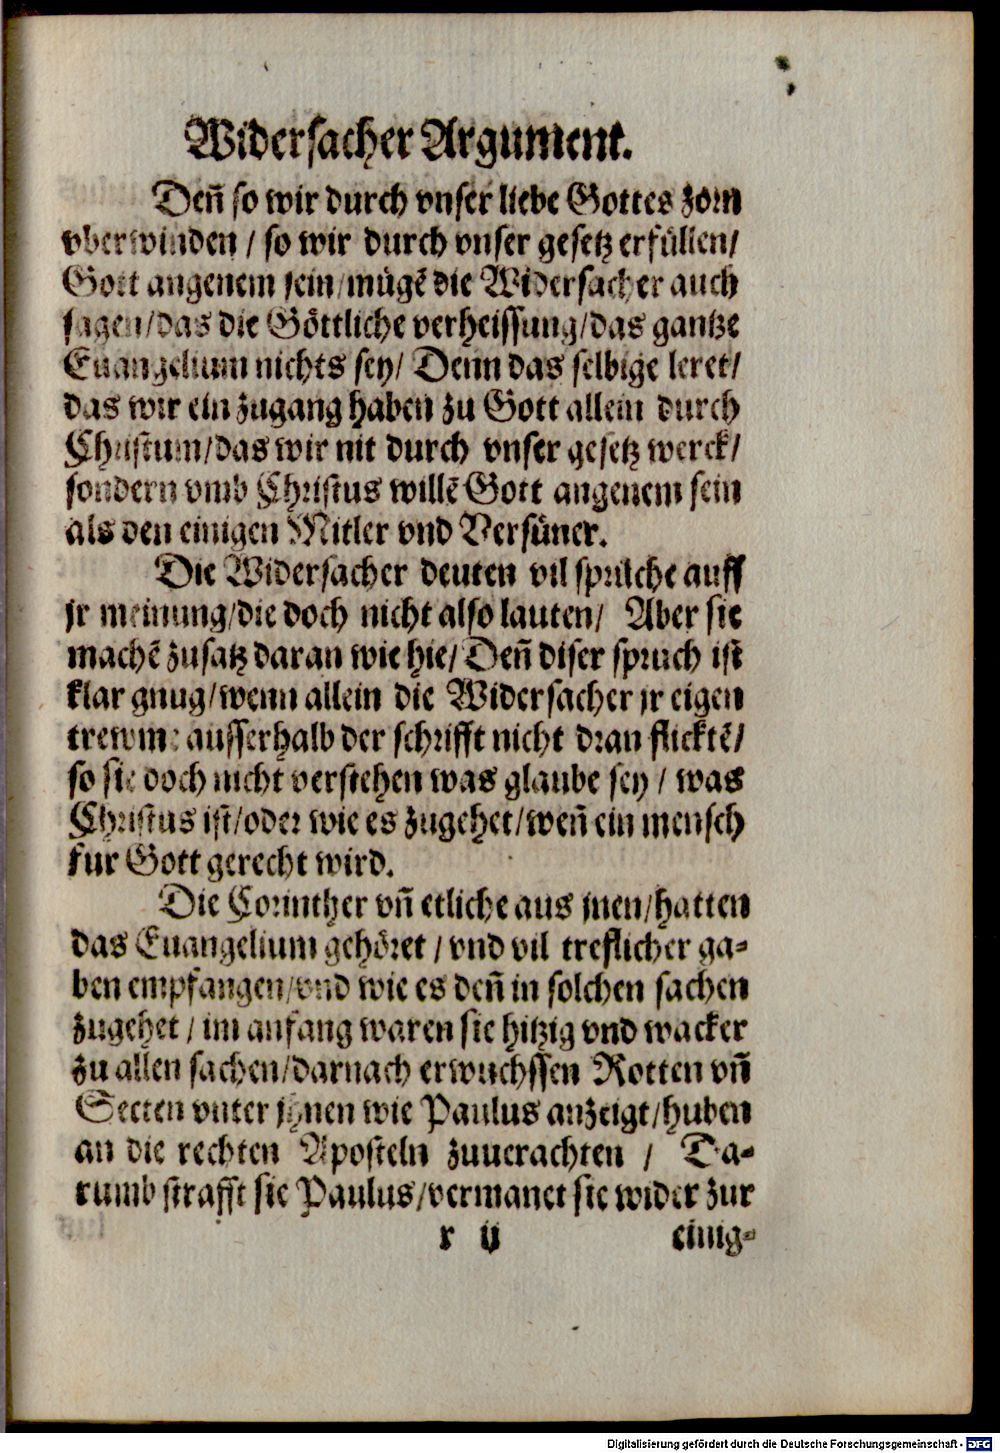 Widersacher Argument.
Deñ so wir durch vnser liebe Gottes zorn
vberwinden / so wir durch vnser gesetz erfüllen/
Gott angenem sein/mügẽ die Widersacher auch
sagen/das die Göttliche verheissung/das gantze
Euangelium nichts sey/ Denn das selbige leret/
das wir ein zugang haben zu Gott allein durch
Christum/das wir nit durch vnser gesetz werck/
sondern vmb Christus willẽ Gott angenem sein
als den einigen Mitler vnd Versüner.
Die Widersacher deuten vil sprüche auff
jr meinung/die doch nicht also lauten/ Aber sie
machẽ zusatz daran wie hie/ Deñ diser spruch ist
klar gnug/wenn allein die Widersacher jr eigen
trewme ausserhalb der schrifft nicht dran flicktẽ/
so sie doch nicht verstehen was glaube sey / was
Christus ist/oder wie es zugehet/weñ ein mensch
fur Gott gerecht wird.
Die Corinther vñ etliche aus jnen/hatten
das Euangelium gehöret / vnd vil treflicher ga-
ben empfangen/vnd wie es deñ in solchen sachen
zugehet / im anfang waren sie hitzig vnd wacker
zu allen sachen/darnach erwuchssen Rotten vñ
Secten vnter jhnen wie Paulus anzeigt/huben
an die rechten Aposteln zuuerachten / Da-
rumb strafft sie Paulus/vermanet sie wider zur
r ij einig-
Digitalisierung gefördert durch die Deutsche Forschungsgemeinschaft - DFG